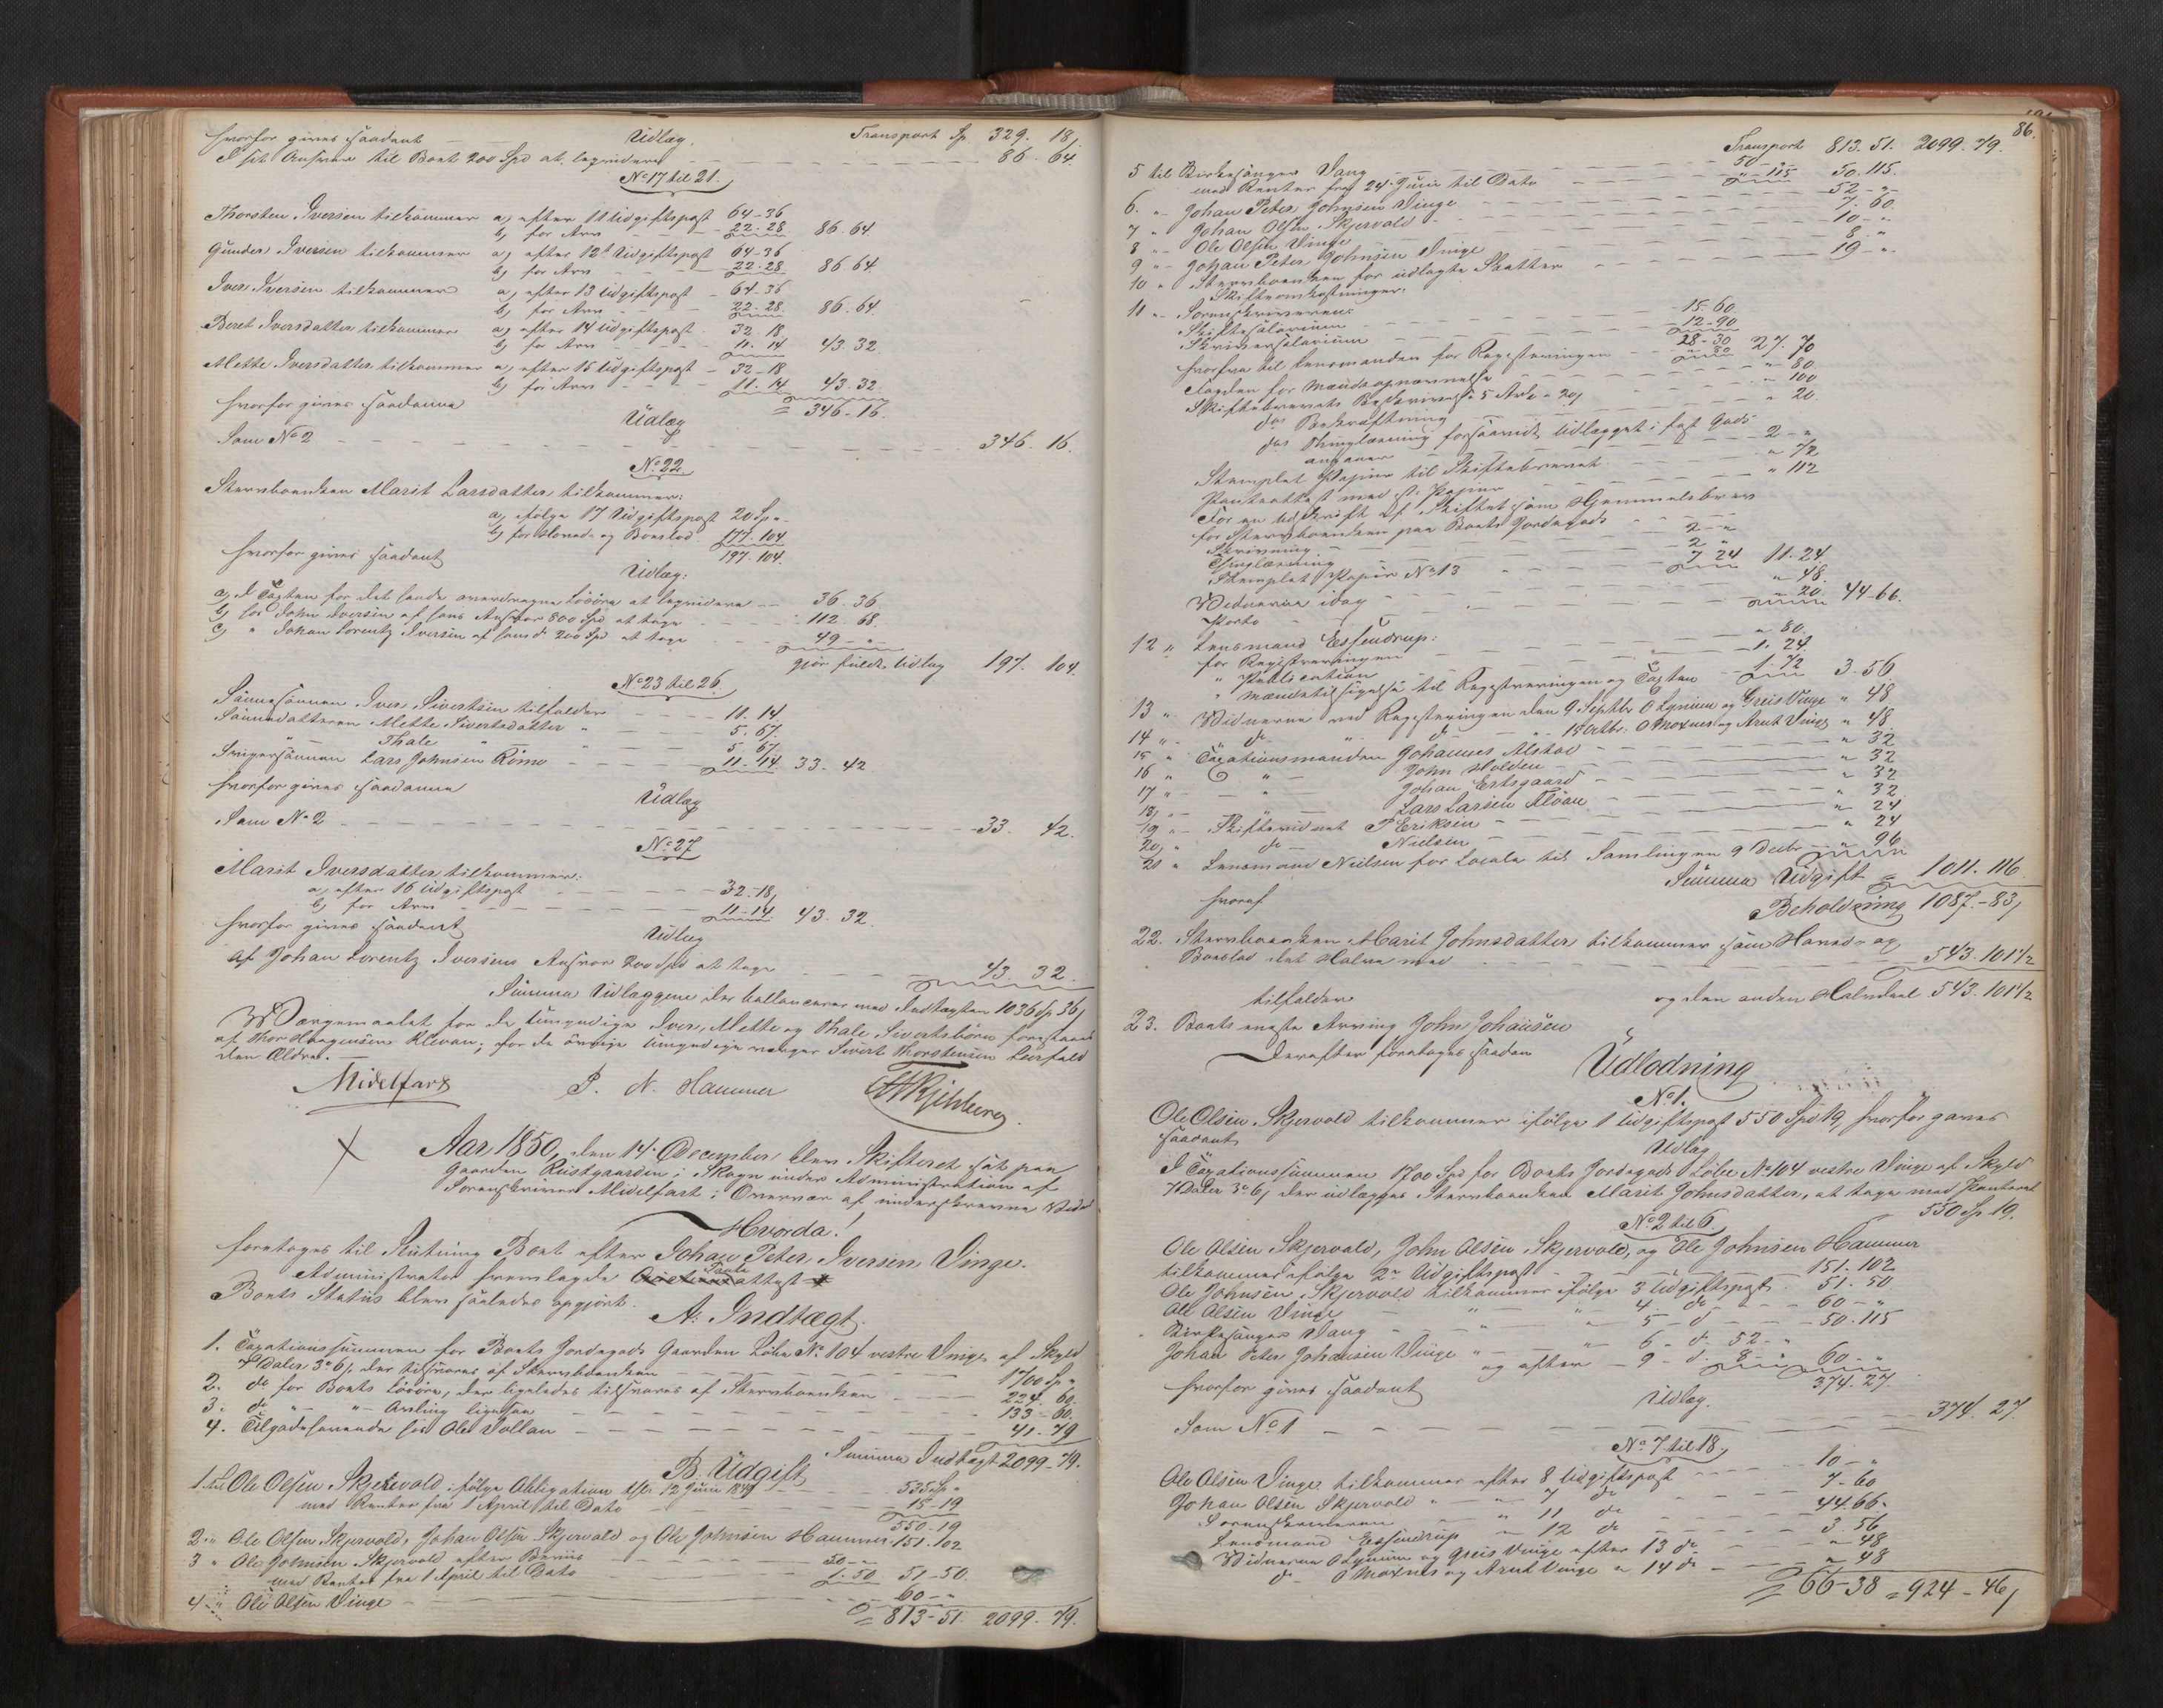 hvorfor gives saadant Udlæg. Transport Sp 329. 18,
I sit Ansvar til Boet 200 Spd at liqvidere 86. 64.
No 17 til 21.
Thorsten Iversen tilkommer a, efter 11 Udgiftspost 64-36
b, for Arv 22. 28. 86. 64
Gunder Iversen tilkommer a, efter 12t Udgiftspost 64-36
b, for Arv 22-28 86 64.
Iver Iversen tilkommer a, efter 13 Udgiftspost 64. 36
b, for Arv 22-28. 86. 64.
Beret Iversdatter tilkommer a, efter 14 Udgiftspost 32. 18,
b, for Arv 11. 14 43. 32.
Mette Iversdatter tilkommer a, efter 15 Udgiftspost 32-18
b, for Arv 11. 14 43. 32.
hvorfor gives saadanne = 346-16.
Udlæg
Som No 2 346. 16.
No 22
Stervboenken Marit Larsdatter tilkommer:
a, ifølge 17 Udgiftspost 20 Sp "-
b, for Hoved- og Boeslod 177. 104
hvorfor gives saadant 197. 104.
Udlæg:
a, I Taxten for det hende overdragne Løsøre at liqvidere 36. 36
b, hos John Iversen af hans Ansvar 800 Spd at tage 112. 68.
c, " Johan Lorentz Iversen af hans do 200 Spd at tage 49 - "
gjør fuldt Udlæg 197. 104.
No 23 til 26.
Sønnesønnen Iver Sivertsen tilfalder 11. 14
Sønnedatteren Mette Sivertsdatter " 5. 67.
" Thale " " 5. 67.
Svigersønnen Lars Johnsen Rømo 11. 14. 33. 42
hvorfor gives saadanne
Udlæg
Som No 2 33. 42.
No 27
Marit Iversdatter tilkommer:
a, efter 16 Udgiftspost 32-18,
b, for Arv 11-14 43. 32.
hvorfor gives saadant Udlæg
af Johan Lorentz Iversens Ansvar 200 Spd at tage 43. 32.
Summa Udlæggene der ballancerer med Indtægten 1036 Sp 36,
Værgemaalet for de umyndige Iver, Mette og Thale Sivertsbørn forestaaes
af Thor Haagensen Klevan; for de øvrige Umyndige værger Sivert Thorstensen Leirfald
den Ældre. -
Midelfart P. N. Hammer
Aar 1850, den 14. December blev Skifteret sat paa
Gaarden Rustgaarden i Skogn under Administration af
Sorenskriver Midelfart i Overvær af underskrevne Vidner
Hvorda!
foretoges til Slutning Boet efter Johan Peter Iversen Vinge.
Administrator fremlagde Panteattest
Boets Status blev saaledes opgjort.
A: Indtægt.
1. Taxationssummen for Boets Jordegods Gaarden Løbe No 104 vestre Vinge af Skyld
7 Daler 3 o 6 s, der tilsvares af Stervboenken 1700 Sp "
2. do for Boets Løsøre, der ligeledes tilsvares af Stervboenken 224. 60.
3. do " " Avling ligesaa 133-60.
4. Tilgodehavende hos Ole Vollan 41. 79
Summa Indtægt 2099-79.
B. Udgift
1. til Ole Olsen Skjervold ifølge Obligation dtr. 12 Juni 1849 535 Sp "
med Renter fra 1 April til Dato 15-19
550. 19
2 " Ole Olsen Skjervold, Johan Olsen Skjervold og Ole Johnsen Hammer 151. 102
3 " Ole Johnsen Skjervold efter Beviis 50 - "
med Renter fra 1 April til Dato 1. 50 51-50.
4 " Ole Olsen Vinge 60 - "
= 813-51. 2099. 79.
86.
Transport 813. 51. 2099. 79.
5 til Kirkesanger Vang 50 - "
med Renter fra 24. Juni til Dato " - 115 50. 115.
6. " Johan Peter Johnsen Vinge 52 - "
7 " Johan Olsen Skjervold 7. 60.
8 " Ole Olsen Vinge 10 - "
9 " Johan Peter Johnsen Vinge 8. "
10 " Stervboenken for udlagte Skatter 19 - "
Skifteomkostninger:
11 " Sorenskriveren:
Skiftesalarium 15. 60.
Skriversalarium 12-90
28-30
hvorfra til Lensmanden for Registreringen " 80 27. 70
Sagden for Mændsopnævnelse " 80.
Skiftebrevets Beskrivelse 5 Ark a 20, " 100
dets Bekræftning " 20.
dets Thinglæsning forsaavidt Udlægget i fast Gods
angaaer 2 - "
Stemplet Papir til Skiftebrevet " 72
Panteattest med st. Papir " 112
For en Udskrift af Skiftet som Hjemmelsbrev
for Stervboenken paa Boets Jordegods
Skrivning 2 - "
Thinglæsning 2 "
Stemplet Papir No 13 7 24 11. 24.
Vidnerne idag " 48.
Porto " 20. 44-66.
12 " Lensmand Essendrup:
for Registreringen " 80.
" Publication 1. 24.
" Mændstilsigelse til Registreringen og Taxten 1. 72 3. 56.
13 " Vidnerne ved Registreringen den 9 Septbr O Lynum og Greis Vinge " 48
14 " do " do " 15 Octbr: O Moxnes og Arnt Vinge " 48
15 " Taxationsmanden Johannes Alstad " 32
16 " " John Holden " 32
17 " " Johan Ertsgaard " 32
18, " " Lars Larsen Fløan " 32
19 " Skiftevidnet P Eriksen " 24
20, " do Nielsen " 24
21 " Lensmand Nielsen for Locale til Samlingen 9 Decbr " 96
Summa Udgift = 1011. 116
hvoraf Beholdning 1087.-83,
22. Stervboenken Marit Johnsdatter tilkommer som Hoved- og
Boeslod det Halve med 543. 101 1/2
tilfalder og den anden Halvdeel 543. 101 1/2
23. Boets eneste Arving John Johansen
Derefter foretoges saadan
Udlodning
No 1.
Ole Olsen Skjervold tilkommer ifølge 1 Udgiftspost 550 Spd 19, hvorfor gaves
saadant
Udlæg
I Taxationssummen 1700 Spd for Boets Jordegods Løbe No 104 vestre Vinge af Skyld
7 Daler 3 o 6, der udlægges Stervboenken Marit Johnsdatter, at tage med Panteret
550 Sp 19.
No 2 til 6.
Ole Olsen Skjervold, John Olsen Skjervold, og Ole Johnsen Hammer
tilkommer ifølge 2n Udgiftspost 151. 102
Ole Johnsen Skjervold tilkommer ifølge 3 Udgiftspost 51. 50.
Ole Olsen Vinge " " 4 do 60 - "
Kirkesanger Vang " " 5 - d 50. 115
Johan Peter Johansen Vinge " " 6 - d. 52 - "
og efter - 9 - d. 8 - " 60 - "
hvorfor gives saadant 374. 27
Udlæg.
Som No 1 374. 27.
No 7 til 18,
Ole Olsen Vinge tilkommer efter 8 Udgiftspost 10 - "
Johan Olsen Skjervold " " 7 do 7-60
Sorenskriveren " 11 do 44. 66.
Lensmand Essendrup " 12 do 3. 56
Vidnerne O Lynum og Greis Vinge efter 13 do " 48
do O Moxnes og Arnt Vinge " 14 do " 48
= 66-38 = 924-46,